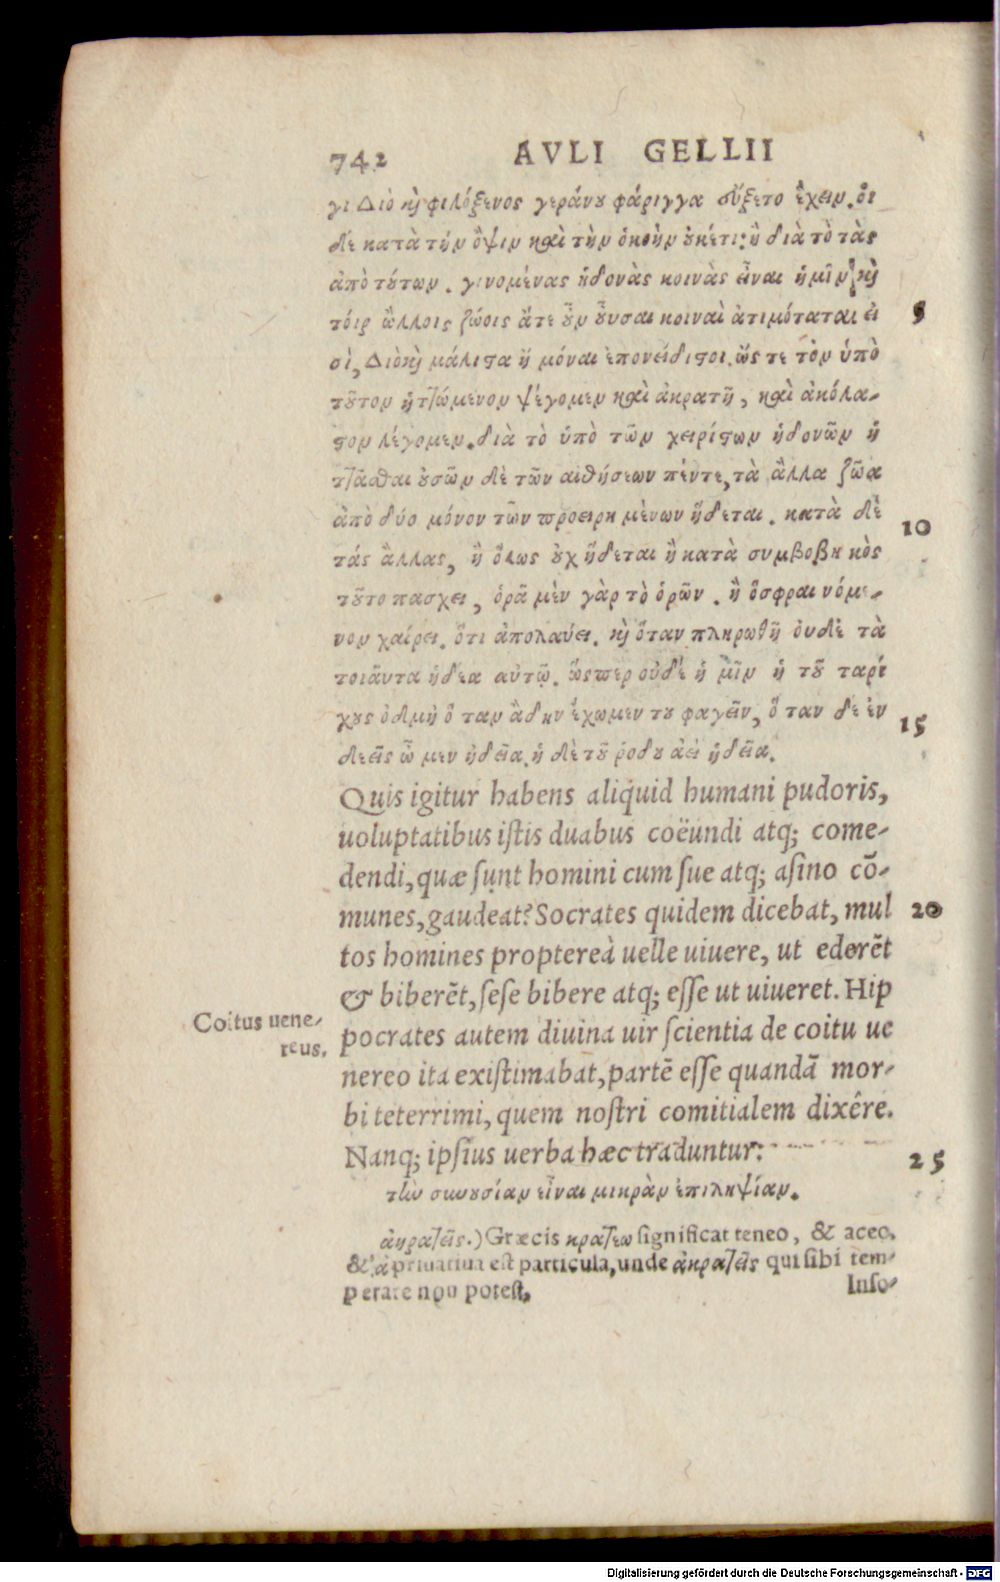 742 AVLI GELLII
γι Διὸ καὶ φιλόξενος γεράνου φάριγγα ἔυξετο ἔχειν. ὁι
δὲ κατὰ τὴν ὄψιν καὶ τὴν ἀκοὴν ὀυκέτι: ἢ διὰ τὸ τὰς
ἀπὸ τούτων. γινομένας ἡδονὰς κοινὰς εἶναι ἡμῖν καὶ
τόις ἄλλοις ζώοις ἅτε οὖν οὖσαι κοιναὶ ἀτιμόταται εἰ
σὶ, Διὸ καὶ μάλιστα ἢ μόναι ἐπονείδιστοι. ὥς τε τὸν ὑπὸ
τοῦτον ἡττώμενον ψέγομεν καὶ ἀκρατῆ, καὶ ἀκόλα-
στον λέγομεν. διὰ τὸ ὑπὸ τῶν χειρίστων ἡδονῶν ἡ
ττᾶσθαι ὀυσῶν δὲ τῶν αισθήσεων πέντε, τὰ ἄλλα ζῶα
ἀπὸ δύο μόνον τῶν προειρη μένων ἥδεται. κατὰ δὲ
τάς ἄλλας, ἢ ὅλως οὐχ ἥδεται ἢ κατὰ συμβοβη κὸς
τοῦτο πασχει, ὁρᾶ μὲν γὰρ τὸ ὁρῶν. ἢ ὄσφραι νόμε-
νον χαίρει. ὅτι ἀπολαύει. καὶ ὅταν πληρωθῆ ὀυδὲ τὰ
τοιᾶυτα ἡδέα αὐτῷ. ὥςπερ οὐδὲ ἡ μῖν ἡ τοῦ ταρί
χους ὀδμὴ ὅ ταν ἄδην ἔχωμεν του φαγεῖν, ὅ ταν δὲ ἐν
δεεῖς ὦ μεν ἡδεῖα. ἡ δὲ τοῦ ῥοδου ἀεὶ ἡδεῖα.
Quis igitur habens aliquid humani pudoris,
uoluptatibus istis duabus coëundi atq; come-
dendi, quæ sunt homini cum sue atq; asino cō-
munes, gaudeat? Socrates quidem dicebat, mul
tos homines proptereà uelle uiuere, ut ederēt
& biberēt, sese bibere atq; esse ut uiueret. Hip
pocrates autem diuina uir scientia de coitu ue
nereo ita existimabat, partē esse quandā mor-
bi teterrimi, quem nostri comitialem dixêre.
Nanq; ipsius uerba hæc traduntur:
τὼ συνουσίαν εἶναι μικρὰν ἐπιληψίαν.
ἀκρατεῖς.) Græcis κρατεω significat teneo, & aceo,
& ἀ priuatiua est particula, unde ἀκρατεῖς qui sibi tem-
perare non potest,
Inso-
Coitus uene-
reus.
5
10
15
20
25
Digitalisierung gefördert durch die Deutsche Forschungsgemeinschaft - DFG